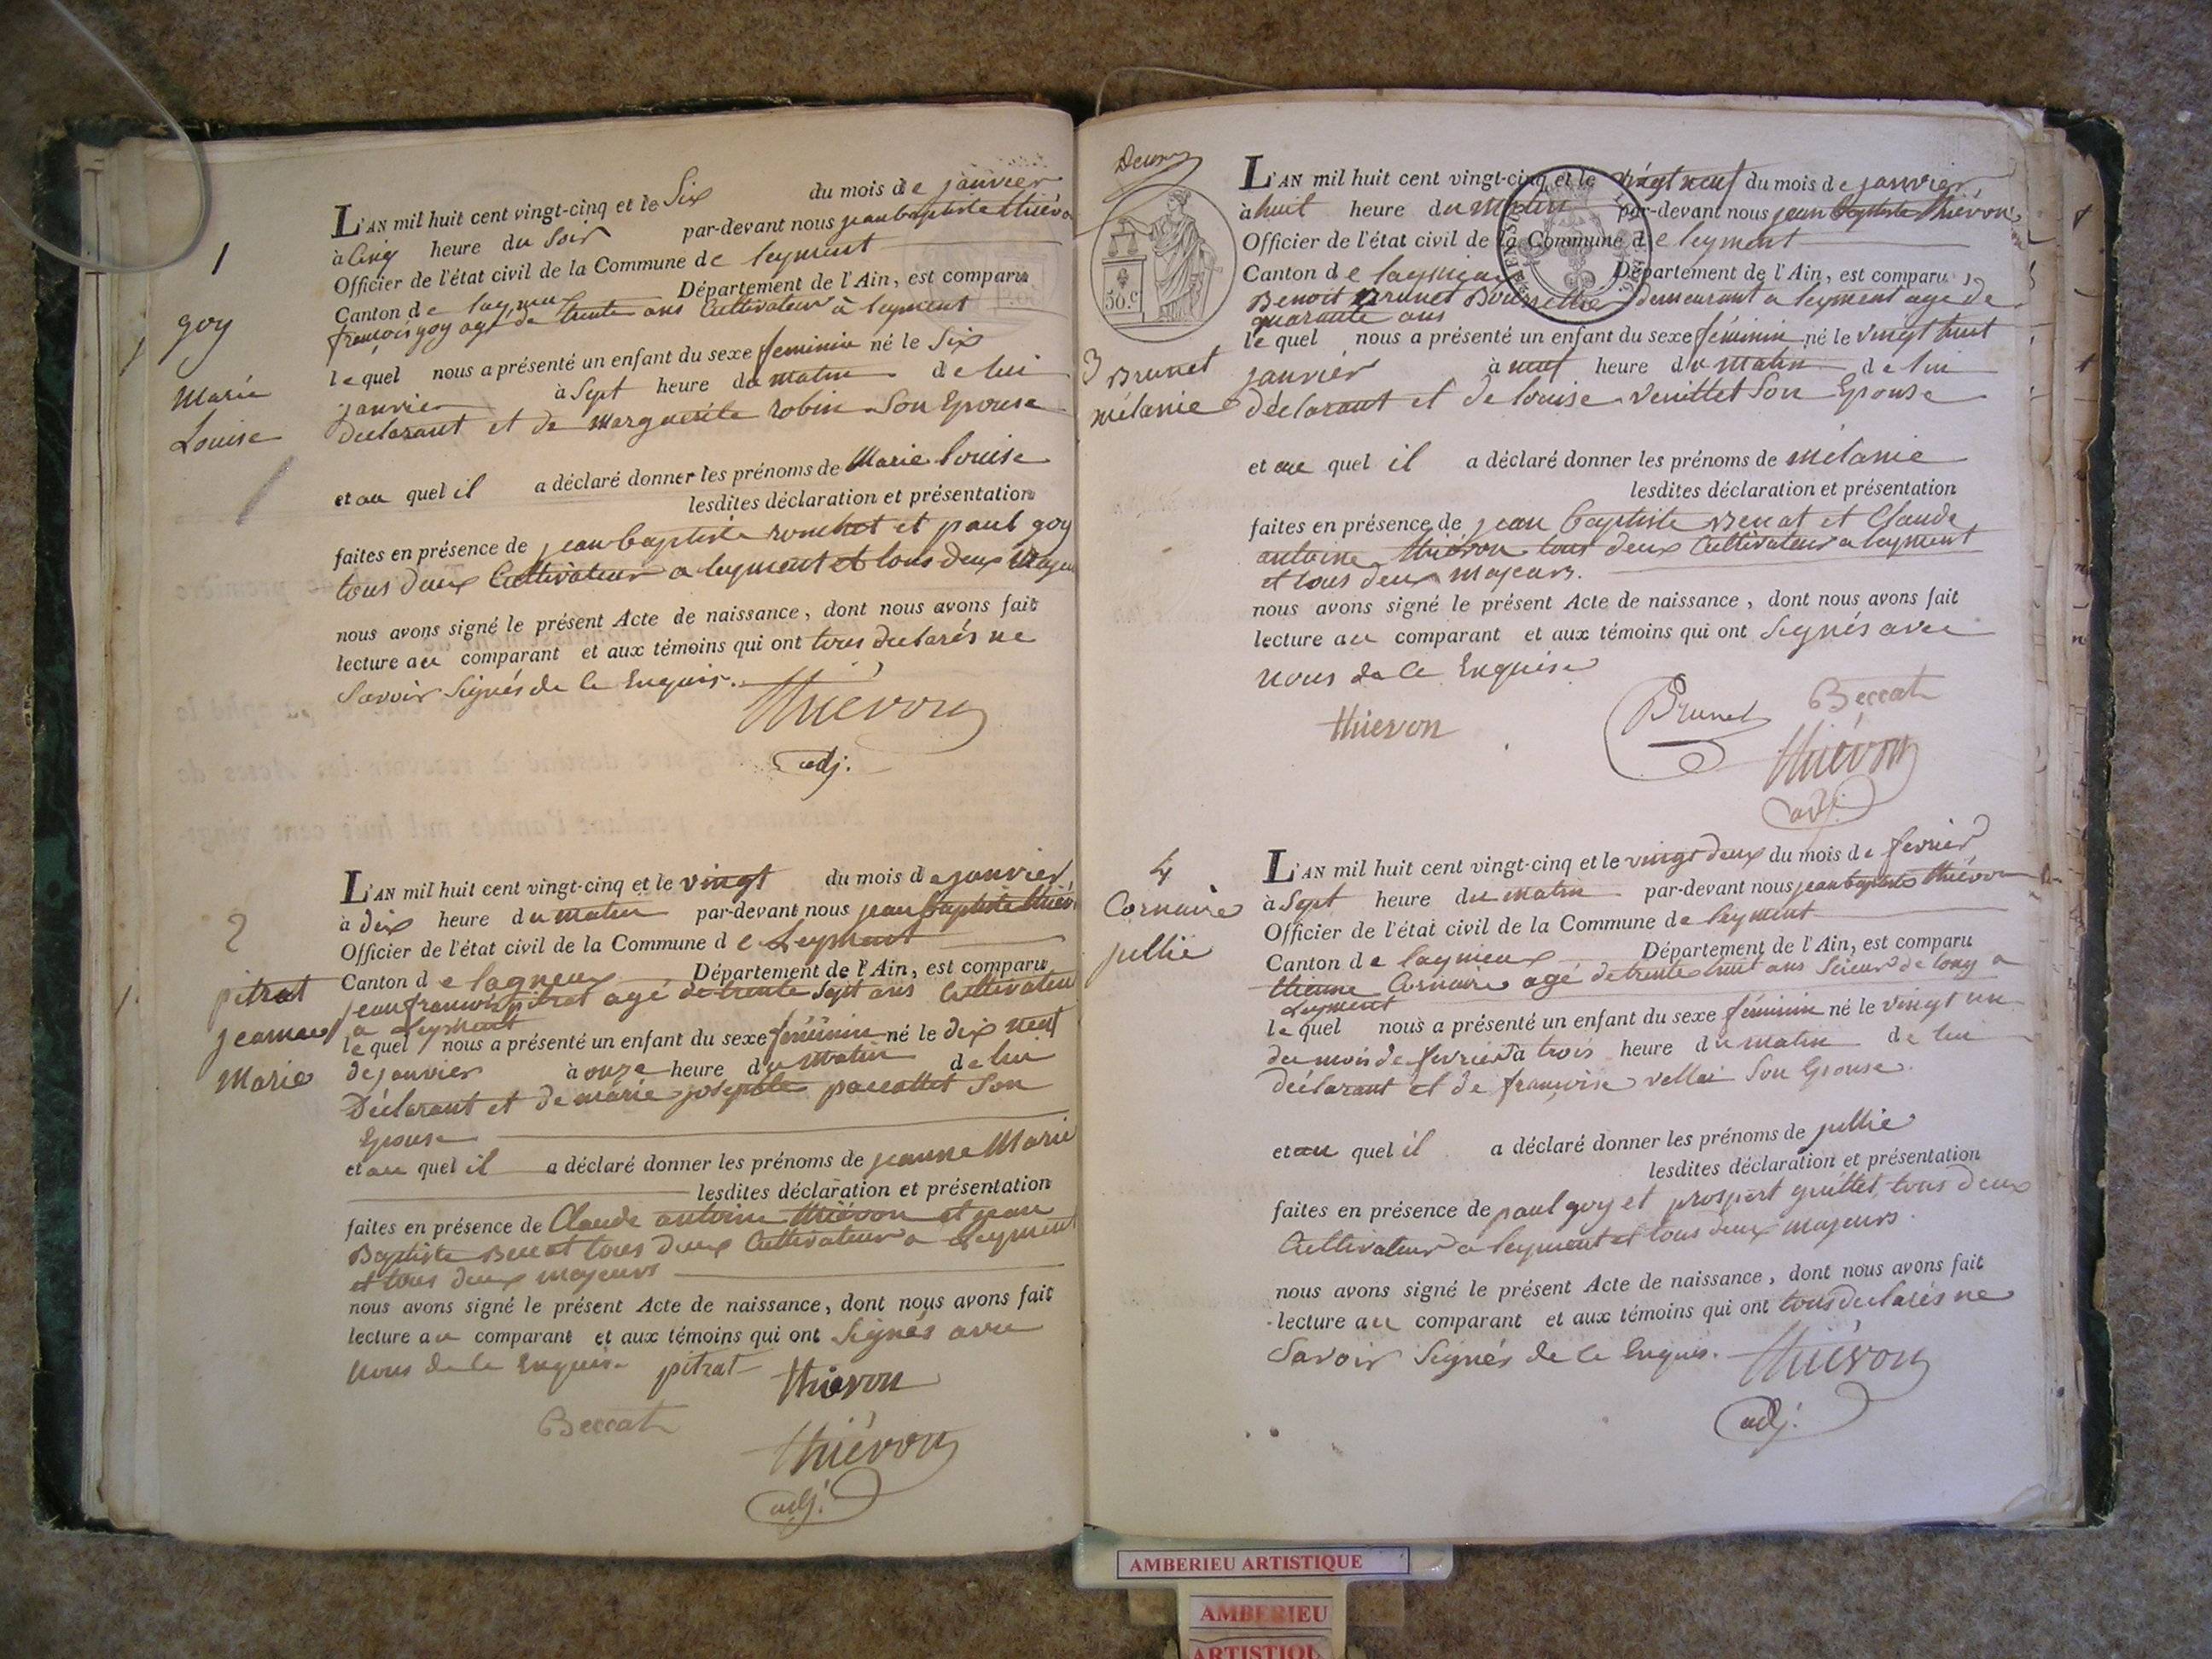 1
goy
Marie
Louise
L'AN mil huit cent vingt-cinq et le Six du mois de janvier
à Cinq heure du Soir par-devant nous jean baptiste thiévon
Officier de l'état civil de la Commune de leyment
Canton de Département de l'Ain, est comparu
françois goy agé de trente ans Cultivateur à leyment
lequel nous a présenté un enfant du sexe feminin né le Six
janvier à Sept heure du matin de lui
declarant et de marguerite robin Son Epouse
et au quel il a déclaré donner les prénoms de Marie louise
lesdites déclaration et présentation
faites en présence de jean baptiste et paul goy
tous deux Cultivateur a leyment et tous deux
nous avons signé le présent Acte de naissance, dont nous avons fait
lecture au comparant et aux témoins qui ont tous declarés ne
Savoir Signés de ce Enquis.
thiévon
adj.
2
pitrat
jeanne
Marie
L'AN mil huit cent vingt-cinq et le vingt du mois de janvier
à dix heure du matin par-devant nous jean baptiste
Officier de l'état civil de la Commune de Leyment
Canton de lagnieux Département de l'Ain, est comparu
jean françois pitrat agé de trente Sept ans Cultivateur
a Leyment
lequel nous a présenté un enfant du sexe féminin né le dix neuf
de janvier à onze heure du matin de lui
Déclarant et de marie josephte Son
Epouse
et au quel il a déclaré donner les prénoms de jeanne Marie
lesdites déclaration et présentation
faites en présence de Claude antoine thiévon et jean
Baptiste tous deux Cultivateur a Leyment
et tous deux majeurs
nous avons signé le présent Acte de naissance, dont nous avons fait
lecture au comparant et aux témoins qui ont Signés avec
nous de ce Enquis pitrat thiévon
Beccat
thiévon
adj.
50.c
3
Brunet
mélanie
L'AN mil huit cent vingt-cinq et le vingt neuf du mois de janvier
à huit heure du matin par-devant nous jean baptiste thiévon
Officier de l'état civil de la Commune de leyment
Canton de Département de l'Ain, est comparu
Benoit Brunet demeurant a leyment age de
quarante ans
lequel nous a présenté un enfant du sexe féminin né le vingt huit
janvier à neuf heure du matin de lui
déclarant et de louise Son Epouse
et au quel il a déclaré donner les prénoms de mélanie
lesdites déclaration et présentation
faites en présence de jean baptiste et Claude
antoine thiévon tous deux Cultivateur a leyment
et tous deux majeurs.
nous avons signé le présent Acte de naissance, dont nous avons fait
lecture au comparant et aux témoins qui ont Signés avec
nous de ce Enquise
thievon Brunet Beccat
thiévon
adj.
4
Cornaire
jullie
L'AN mil huit cent vingt-cinq et le vingt deux du mois de fevrier
à Sept heure du matin par-devant nous jean baptiste thiévon
Officier de l'état civil de la Commune de leyment
Canton de lagnieux Département de l'Ain, est comparu
Etienne Cornaire agé de trente huit ans Scieur de long a
Leyment
lequel nous a présenté un enfant du sexe féminin né le vingt un
du mois de fevrier à trois heure du matin de lui
déclarant et de françoise Son Epouse.
et au quel il a déclaré donner les prénoms de jullie
lesdites déclaration et présentation
faites en présence de paul goy et prospert tous deux
Cultivateur a leyment et tous deux majeurs.
nous avons signé le présent Acte de naissance, dont nous avons fait
lecture au comparant et aux témoins qui ont tous declarés ne
Savoir Signés de ce Enquis.
thiévon
adj.
AMBERIEU ARTISTIQUE
AMBERIEU
ARTISTIQU